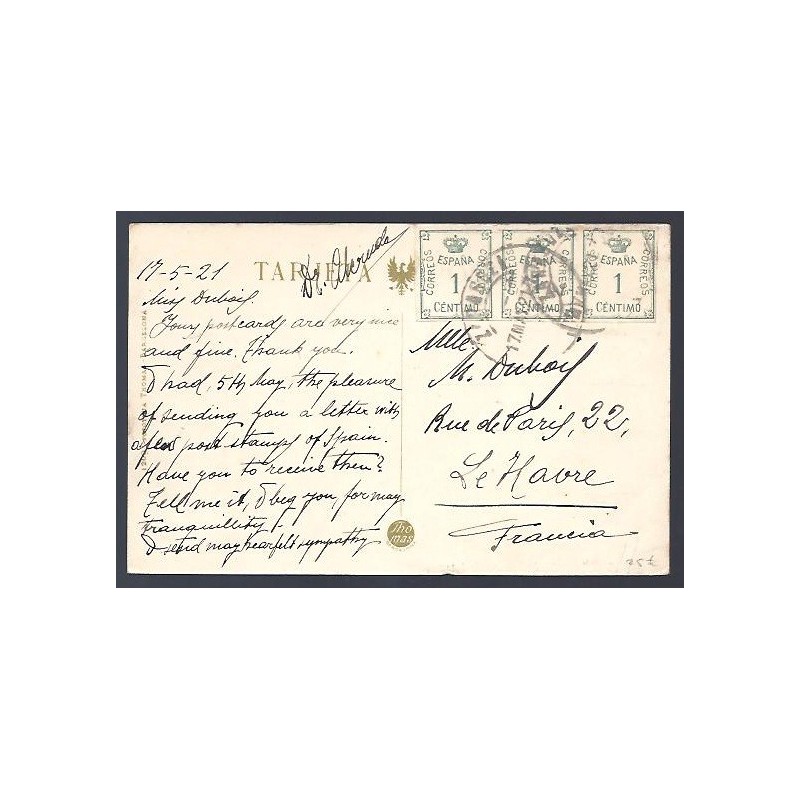 17-5-21
TARJETA
Dr.
Miss Dubois.
Your postcards are very nice
and fine. Thank you.
I had, 5th May, the pleasure
of sending you a letter with
a few post stamps of Spain.
Have you to receive then?
Tell me it, I beg you, for may
tranquillity.
I send may hearfelt sympathy
Thomas
THOMAS - BARCELONA
CORREOS ESPAÑA CORREOS
1
CÉNTIMO
CORREOS ESPAÑA CORREOS
1
CÉNTIMO
CORREOS ESPAÑA CORREOS
1
CÉNTIMO
Mlle.
M. Dubois
Rue de Paris, 22,
Le Havre
Francia